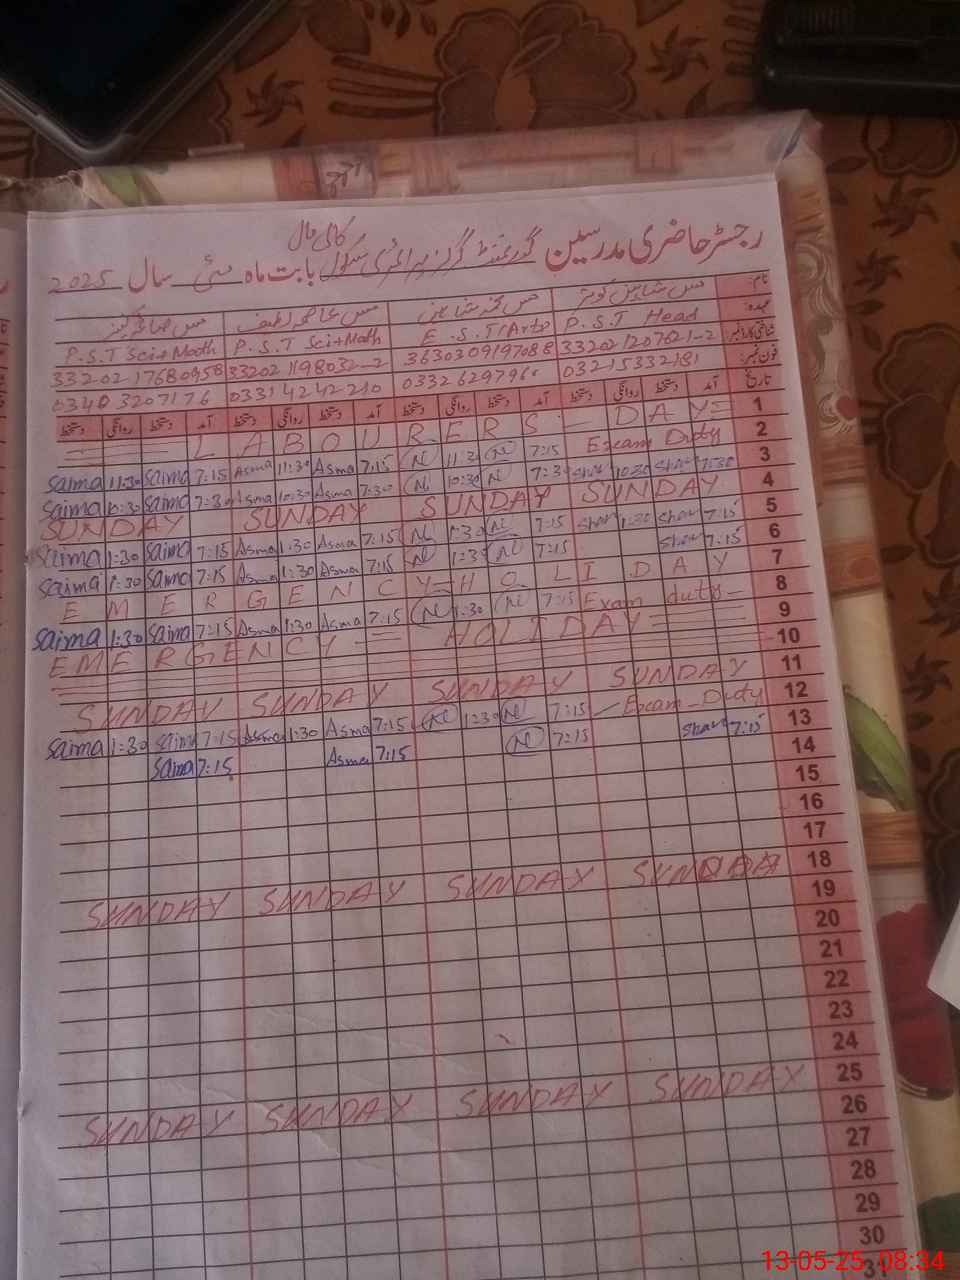 رجسٹر حاضری مدرسین گورنمنٹ گرلز پرائمری سکول کالی مال بابت ماہ مئی سال 2025
نام: مس شاہین کوثر مس عاصمہ لطیف مس صائمہ
عہدہ: P.S.T Head E.S.T/Arts P.S.T Sci+Math P.S.T Sci+Math
شناختی کارڈ نمبر: 33202 1207621-2 3630309197088 33202 1198032-2 33202 17680958
فون نمبر: 03215333281 033262979 0331 4242210 0340 3207176
تاریخ آمد دستخط روانگی دستخط آمد دستخط روانگی دستخط آمد دستخط روانگی دستخط آمد دستخط روانگی دستخط
1 LABOURERS - DAY
2 Saima 11:30 Saima 7:15 Asma 11:30 Asma 7:15 N 11:30 N 7:15 Exam Duty
3 Saima 10:30 Saima 7:30 Asma 10:30 Asma 7:30 N 10:30 N 7:30 Shah 10:30 Shah 7:30
4 SUNDAY SUNDAY SUNDAY SUNDAY
5 Saima 1:30 Saima 7:15 Asma 1:30 Asma 7:15 N 1:30 N 7:15 Shah 1:30 Shah 7:15
6 Saima 1:30 Saima 7:15 Asma 1:30 Asma 7:15 N 1:30 N 7:15 Shah 7:15
7 EMERGENCY - HOLIDAY
8 Saima 1:30 Saima 7:15 Asma 1:30 Asma 7:15 N 1:30 N 7:15 Exam duty
9 EMERGENCY - HOLIDAY
10
11 SUNDAY SUNDAY SUNDAY SUNDAY
12 Saima 1:30 Saima 7:15 Asma 1:30 Asma 7:15 N 1:30 N 7:15 Exam - Duty
13 Saima 7:15 Asma 7:15 N 7:15 Shah 7:15
14
15
16
17
18 SUNDAY SUNDAY SUNDAY SUNDAY
19
20
21
22
23
24
25 SUNDAY SUNDAY SUNDAY SUNDAY
26
27
28
29
30
13-05-25 08:34